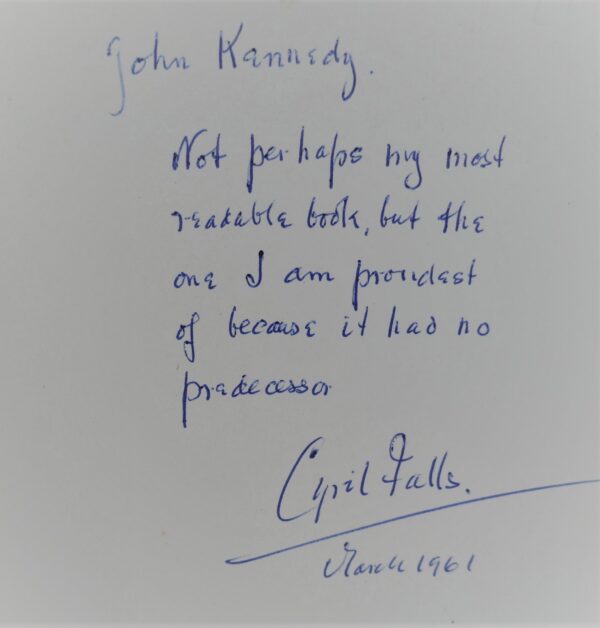 John Kennedy.
Not perhaps my most
readable book, but the
one I am proudest
of because it had no
predecessor
Cyril Falls.
March 1961